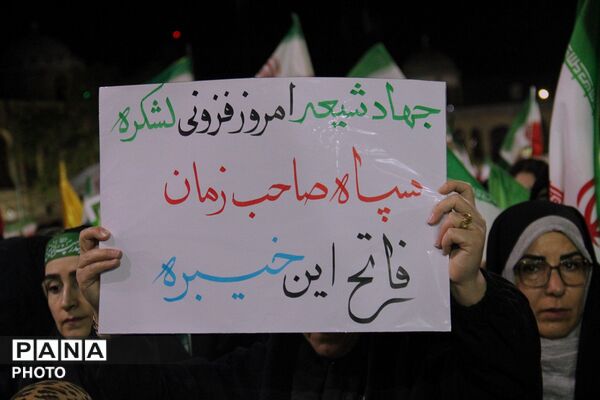 جهاد شیعه امروز فزونی لشکره
سپاه صاحب زمان
فاتح این خیبره
PANA
PHOTO